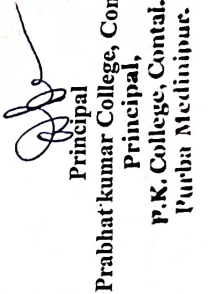 Principal
Prabhat kumar College, Con
Principal,
P.K. College, Contai.
Purba Medinipur.